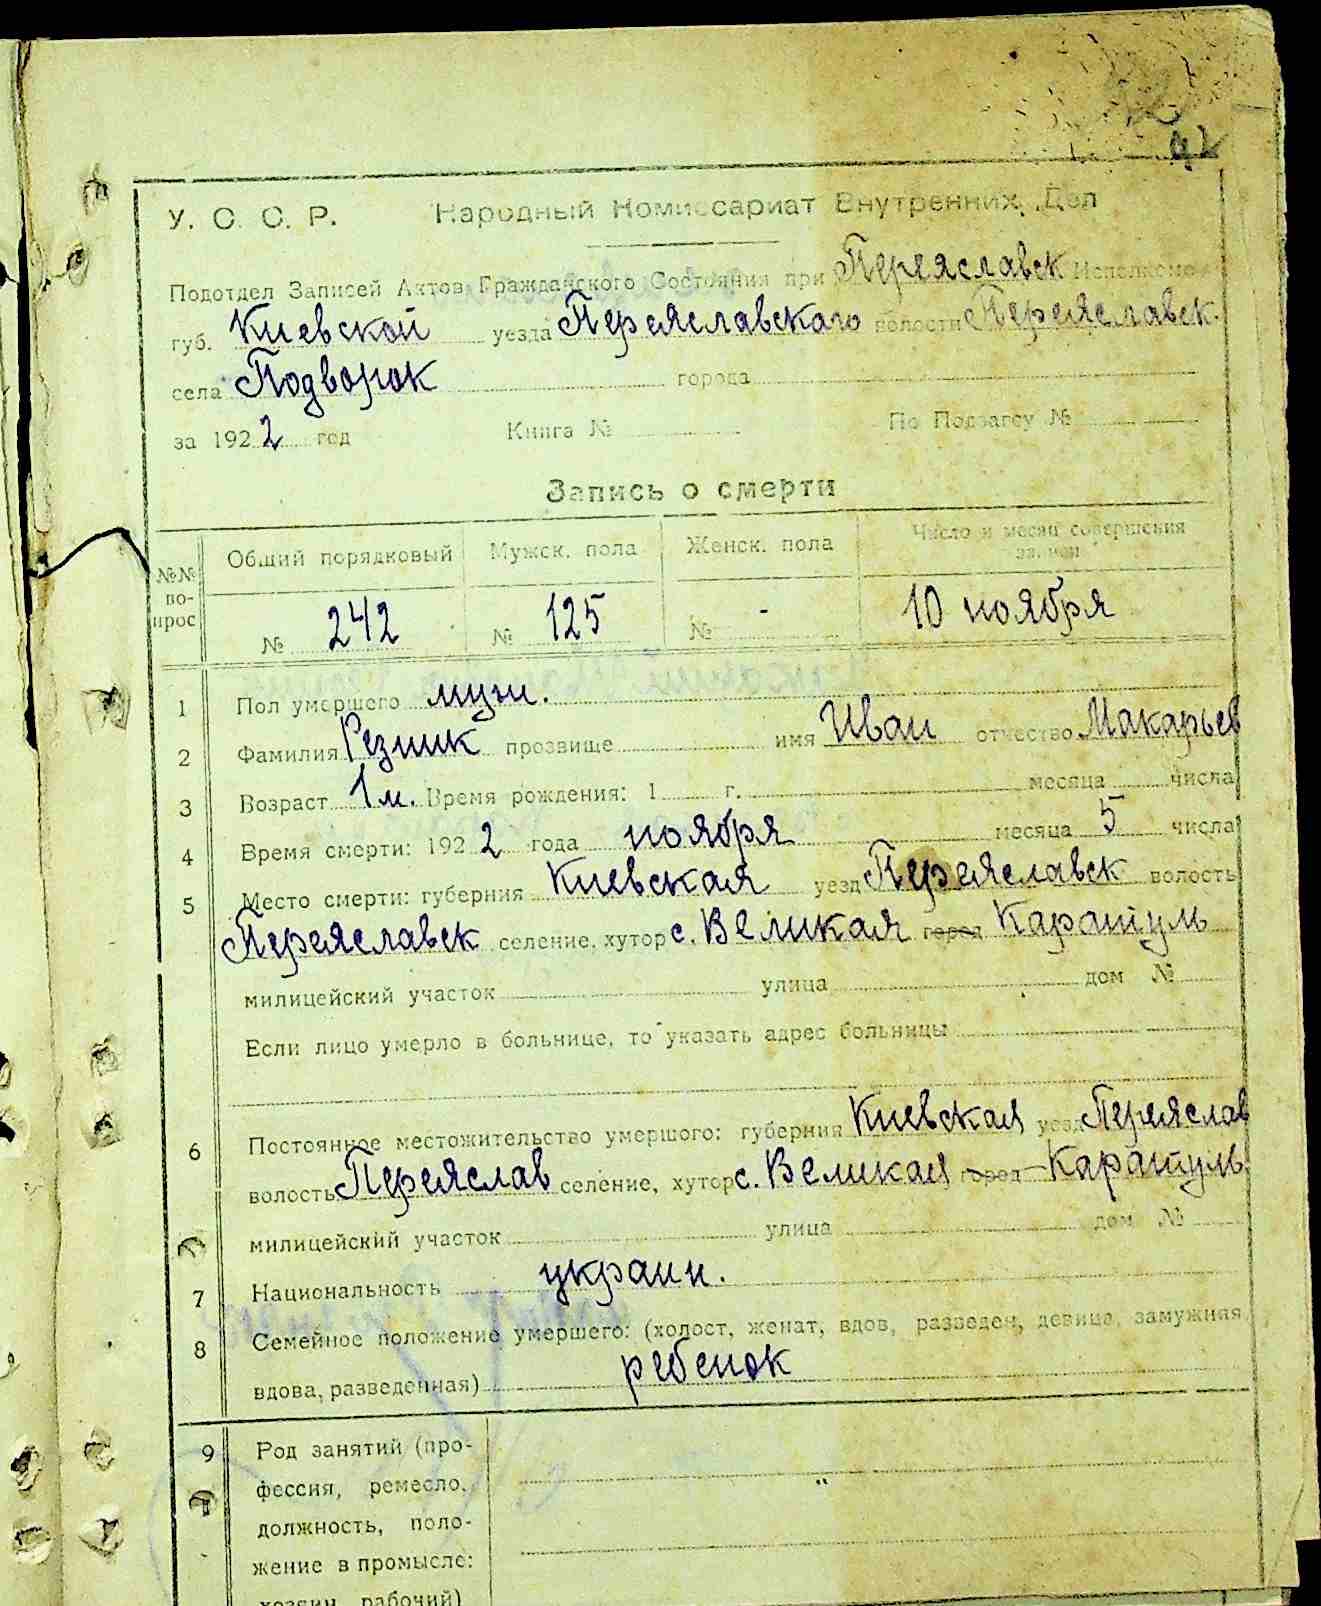 42
У. С. С. Р. Народный Комиссариат Внутренних Дел
Подотдел Записей Актов Гражданского Состояния при Переяславск Исполкоме
губ. Киевской уезда Переяславскаго волости Переяславск.
села Подворок города
за 1922 год Книга № По Подзагсу №
Запись о смерти
№№ вопрос Общий порядковый Мужск. пола Женск. пола Число и месяц совершения записи
№ 242 № 125 № - 10 ноября
1 Пол умершего муж.
2 Фамилия Резник прозвище имя Иван отчество Макарьев
3 Возраст 1 м. Время рождения: 1 г. месяца числа
4 Время смерти: 1922 года ноября месяца 5 числа
5 Место смерти: губерния Киевская уезд Переяславск волость
Переяславск селение, хутор с. Великая город Каратуль
милицейский участок улица дом №
Если лицо умерло в больнице, то указать адрес больницы
6 Постоянное местожительство умершего: губерния Киевская уезд Переяслав
волость Переяслав селение, хутор с. Великая город Каратуль
милицейский участок улица дом №
7 Национальность украин.
8 Семейное положение умершего: (холост, женат, вдов, разведен, девица, замужняя
вдова, разведенная) ребенок
9 Род занятий (про-
фессия, ремесло, "
должность, поло-
жение в промысле:
хозяин, рабочий)